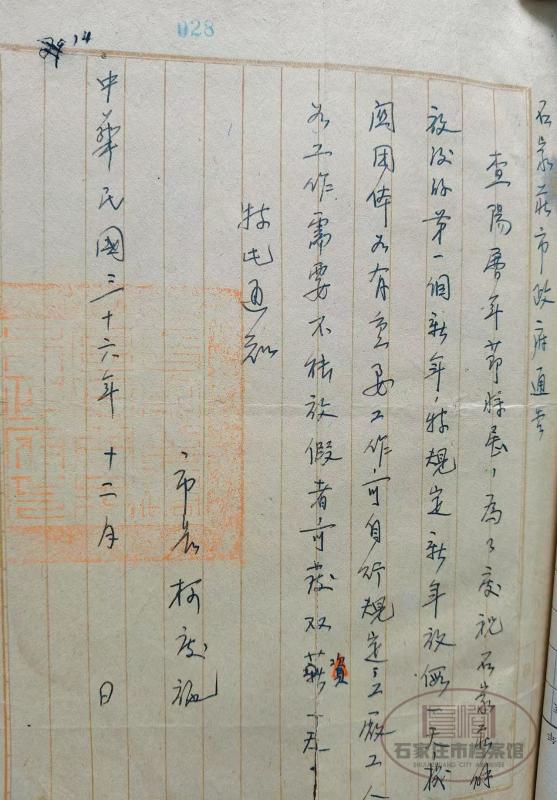 石家莊市政府通告
查陽曆年節将屆，為了慶祝石家莊解
放後的第一個新年，特規定新年放假一天機
関团体如有重要工作可自行規定；工厰工人
如工作需要不能放假者可發双薪資一天。
特此通知
市長柯慶施
中華民國三十六年十二月 日
028
14
石家庄市档案馆
SHIJIAZHUANG CITY ARCHIVES